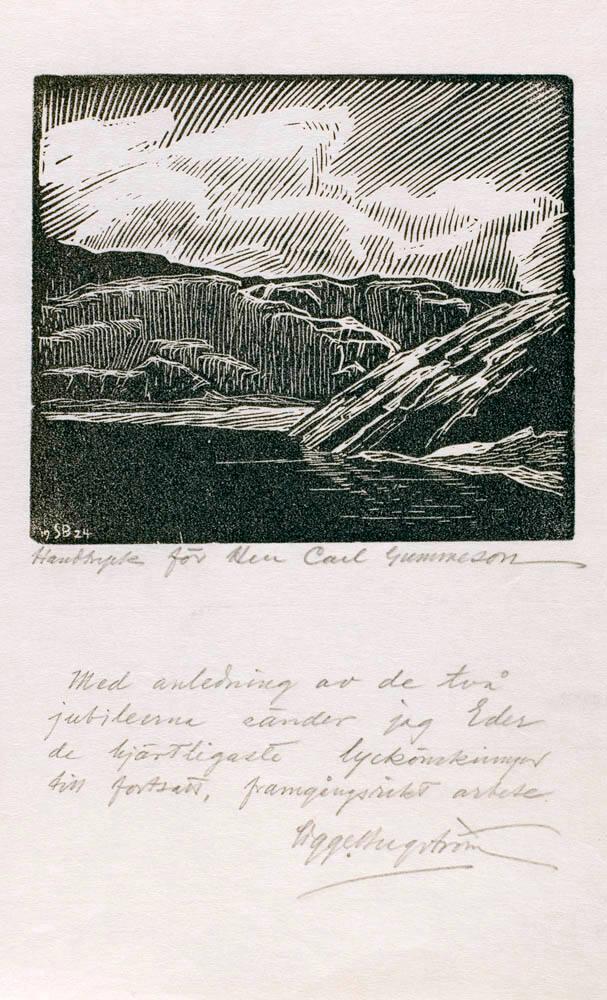 19 SB 24
Handtryck för Herr Carl Gummeson
Med anledning av de två
jubileerna sänder jag Eder
de hjärtligaste lyckönskningar
till fortsatt, framgångsrikt arbete.
Sigge Bergström